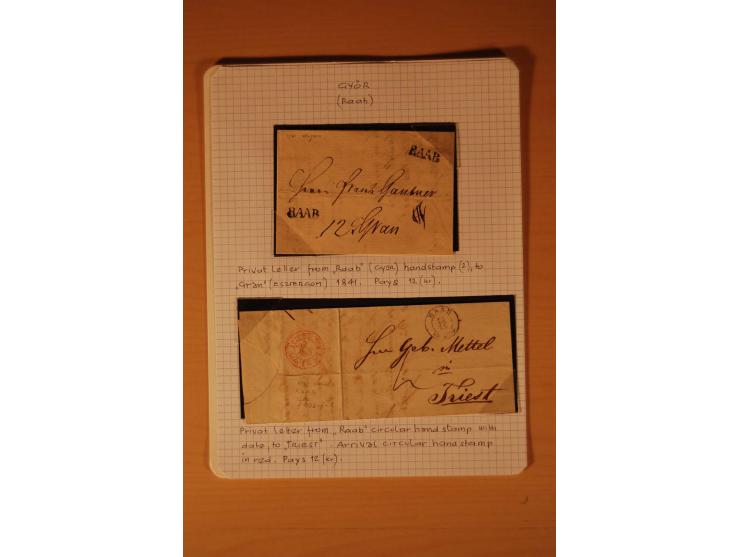 GYÖR
(Raab)
RAAB
Herrn Franz Gantner
RAAB
12 Gran
Privat Letter from „Raab" (GYÖR) handstamp (2), to
„Gran" (ESZTERGOM) 1841. Pays 12 (kr).
RAAB
Herrn Geb. Mettel
in
Triest
Privat Letter from „Raab" circular hand stamp with
date, to „TRIEST". Arrival circular hand stamp
in red. Pays 12 (kr).